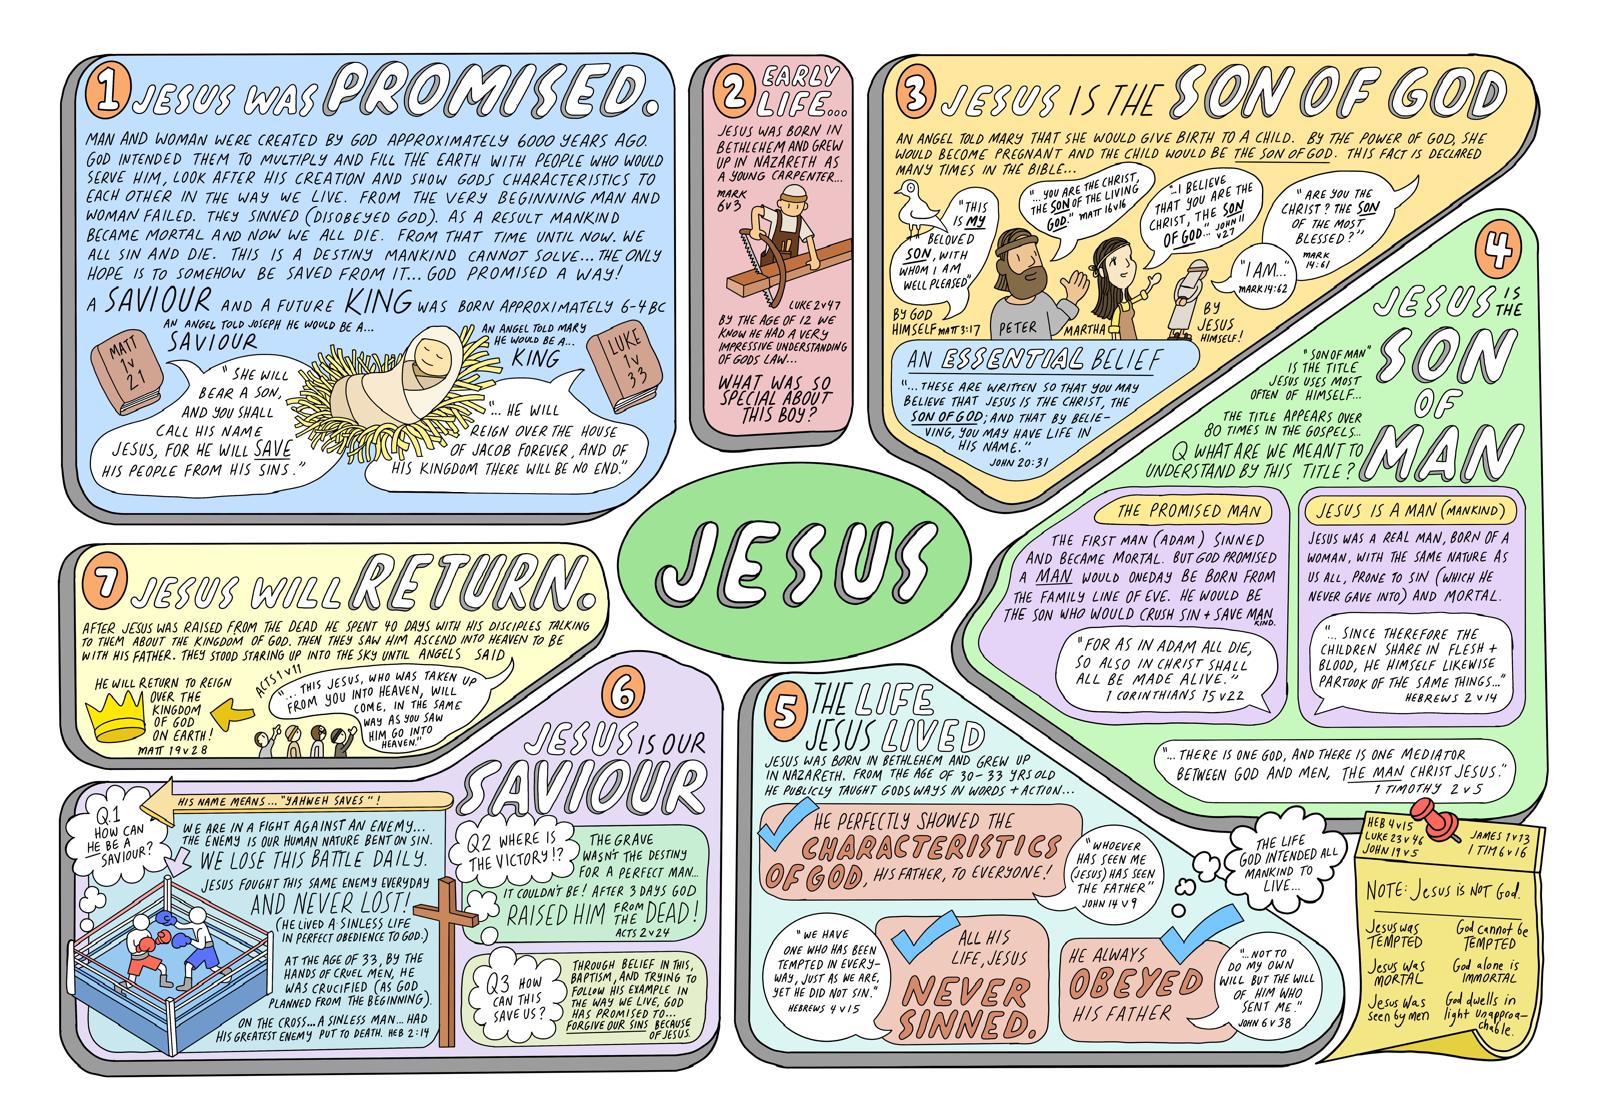 1 JESUS WAS PROMISED.
MAN AND WOMAN WERE CREATED BY GOD APPROXIMATELY 6000 YEARS AGO.
GOD INTENDED THEM TO MULTIPLY AND FILL THE EARTH WITH PEOPLE WHO WOULD
SERVE HIM, LOOK AFTER HIS CREATION AND SHOW GODS CHARACTERISTICS TO
EACH OTHER IN THE WAY WE LIVE. FROM THE VERY BEGINNING MAN AND
WOMAN FAILED. THEY SINNED (DISOBEYED GOD). AS A RESULT MANKIND
BECAME MORTAL AND NOW WE ALL DIE. FROM THAT TIME UNTIL NOW. WE
ALL SIN AND DIE. THIS IS A DESTINY MANKIND CANNOT SOLVE... THE ONLY
HOPE IS TO SOMEHOW BE SAVED FROM IT... GOD PROMISED A WAY!
A SAVIOUR AND A FUTURE KING WAS BORN APPROXIMATELY 6-4 BC
AN ANGEL TOLD JOSEPH HE WOULD BE A...
SAVIOUR
MATT
1v
21
"SHE WILL
BEAR A SON,
AND YOU SHALL
CALL HIS NAME
JESUS, FOR HE WILL SAVE
HIS PEOPLE FROM HIS SINS."
AN ANGEL TOLD MARY
HE WOULD BE A...
KING
LUKE
1v
33
"... HE WILL
REIGN OVER THE HOUSE
OF JACOB FOREVER, AND OF
HIS KINGDOM THERE WILL BE NO END."
2 EARLY
LIFE...
JESUS WAS BORN IN
BETHLEHEM AND GREW
UP IN NAZARETH AS
A YOUNG CARPENTER...
MARK
6v3
LUKE 2v47
BY THE AGE OF 12 WE
KNOW HE HAD A VERY
IMPRESSIVE UNDERSTANDING
OF GODS LAW...
WHAT WAS SO
SPECIAL ABOUT
THIS BOY?
3 JESUS IS THE SON OF GOD
AN ANGEL TOLD MARY THAT SHE WOULD GIVE BIRTH TO A CHILD. BY THE POWER OF GOD, SHE
WOULD BECOME PREGNANT AND THE CHILD WOULD BE THE SON OF GOD. THIS FACT IS DECLARED
MANY TIMES IN THE BIBLE...
"THIS
IS MY
BELOVED
SON, WITH
WHOM I AM
WELL PLEASED"
BY GOD
HIMSELF MATT 3:17
"...YOU ARE THE CHRIST,
THE SON OF THE LIVING
GOD." MATT 16v16
PETER
"...I BELIEVE
THAT YOU ARE THE
CHRIST, THE SON
OF GOD..." JOHN 11
v27
MARTHA
"ARE YOU THE
CHRIST? THE SON
OF THE MOST
BLESSED?"
MARK
14:61
"I AM..."
MARK 14:62
BY
JESUS
HIMSELF!
AN ESSENTIAL BELIEF
"...THESE ARE WRITTEN SO THAT YOU MAY
BELIEVE THAT JESUS IS THE CHRIST, THE
SON OF GOD; AND THAT BY BELIE-
VING, YOU MAY HAVE LIFE IN
HIS NAME."
JOHN 20:31
4
JESUS IS
THE
SON
OF
MAN
"SON OF MAN"
IS THE TITLE
JESUS USES MOST
OFTEN OF HIMSELF...
THE TITLE APPEARS OVER
80 TIMES IN THE GOSPELS...
Q WHAT ARE WE MEANT TO
UNDERSTAND BY THIS TITLE?
THE PROMISED MAN
THE FIRST MAN (ADAM) SINNED
AND BECAME MORTAL. BUT GOD PROMISED
A MAN WOULD ONEDAY BE BORN FROM
THE FAMILY LINE OF EVE. HE WOULD BE
THE SON WHO WOULD CRUSH SIN + SAVE MAN
KIND.
"FOR AS IN ADAM ALL DIE,
SO ALSO IN CHRIST SHALL
ALL BE MADE ALIVE."
1 CORINTHIANS 15 v22
JESUS IS A MAN (MANKIND)
JESUS WAS A REAL MAN, BORN OF A
WOMAN, WITH THE SAME NATURE AS
US ALL, PRONE TO SIN (WHICH HE
NEVER GAVE INTO) AND MORTAL.
"... SINCE THEREFORE THE
CHILDREN SHARE IN FLESH +
BLOOD, HE HIMSELF LIKEWISE
PARTOOK OF THE SAME THINGS..."
HEBREWS 2 v14
"...THERE IS ONE GOD, AND THERE IS ONE MEDIATOR
BETWEEN GOD AND MEN, THE MAN CHRIST JESUS."
1 TIMOTHY 2 v5
JESUS
7 JESUS WILL RETURN.
AFTER JESUS WAS RAISED FROM THE DEAD HE SPENT 40 DAYS WITH HIS DISCIPLES TALKING
TO THEM ABOUT THE KINGDOM OF GOD. THEN THEY SAW HIM ASCEND INTO HEAVEN TO BE
WITH HIS FATHER. THEY STOOD STARING UP INTO THE SKY UNTIL ANGELS SAID
HE WILL RETURN TO REIGN
OVER THE
KINGDOM
OF GOD
ON EARTH!
MATT 19 v 28
ACTS 1 v 11
"... THIS JESUS, WHO WAS TAKEN UP
FROM YOU INTO HEAVEN, WILL
COME, IN THE SAME
WAY AS YOU SAW
HIM GO INTO
HEAVEN."
6
JESUS IS OUR
SAVIOUR
HIS NAME MEANS... "YAHWEH SAVES"!
Q.1
HOW CAN
HE BE A
SAVIOUR?
WE ARE IN A FIGHT AGAINST AN ENEMY...
THE ENEMY IS OUR HUMAN NATURE BENT ON SIN.
WE LOSE THIS BATTLE DAILY.
JESUS FOUGHT THIS SAME ENEMY EVERYDAY
AND NEVER LOST!
(HE LIVED A SINLESS LIFE
IN PERFECT OBEDIENCE TO GOD.)
AT THE AGE OF 33, BY THE
HANDS OF CRUEL MEN, HE
WAS CRUCIFIED (AS GOD
PLANNED FROM THE BEGINNING).
ON THE CROSS... A SINLESS MAN... HAD
HIS GREATEST ENEMY PUT TO DEATH. HEB 2:14
Q2 WHERE IS
THE VICTORY!?
THE GRAVE
WASN'T THE DESTINY
FOR A PERFECT MAN...
IT COULDN'T BE! AFTER 3 DAYS GOD
RAISED HIM FROM THE DEAD!
ACTS 2 v 24
Q3 HOW
CAN THIS
SAVE US?
THROUGH BELIEF IN THIS,
BAPTISM, AND TRYING TO
FOLLOW HIS EXAMPLE IN
THE WAY WE LIVE, GOD
HAS PROMISED TO...
FORGIVE OUR SINS BECAUSE
OF JESUS.
5 THE LIFE
JESUS LIVED
JESUS WAS BORN IN BETHLEHEM AND GREW UP
IN NAZARETH. FROM THE AGE OF 30-33 YRS OLD
HE PUBLICLY TAUGHT GODS WAYS IN WORDS + ACTION...
HE PERFECTLY SHOWED THE
CHARACTERISTICS
OF GOD, HIS FATHER, TO EVERYONE!
"WHOEVER
HAS SEEN ME
(JESUS) HAS SEEN
THE FATHER"
JOHN 14 v 9
"WE HAVE
ONE WHO HAS BEEN
TEMPTED IN EVERY-
WAY, JUST AS WE ARE,
YET HE DID NOT SIN."
HEBREWS 4 v 15
ALL HIS
LIFE, JESUS
NEVER
SINNED.
HE ALWAYS
OBEYED
HIS FATHER
"...NOT TO
DO MY OWN
WILL BUT THE WILL
OF HIM WHO
SENT ME."
JOHN 6 v 38
THE LIFE
GOD INTENDED ALL
MANKIND TO
LIVE...
HEB 4v15
LUKE 23 v 46
JOHN 19 v 5
JAMES 1 v 13
1 TIM 6 v 16
NOTE: Jesus is NOT God.
Jesus was
TEMPTED
God cannot be
TEMPTED
Jesus was
MORTAL
God alone is
IMMORTAL
Jesus was
seen by men
God dwells in
light unapproa-
chable.